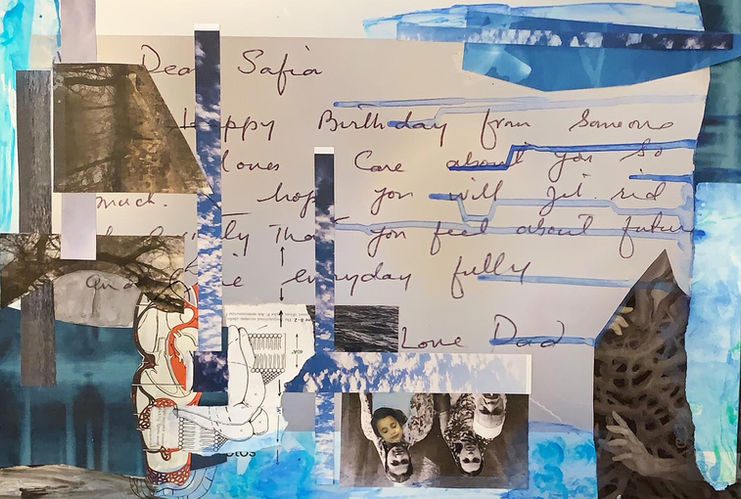 Dear Safia
Happy Birthday from Someone
loves Care about you so
much. hope you will get rid
that you feel about future
everyday fully
Love Dad